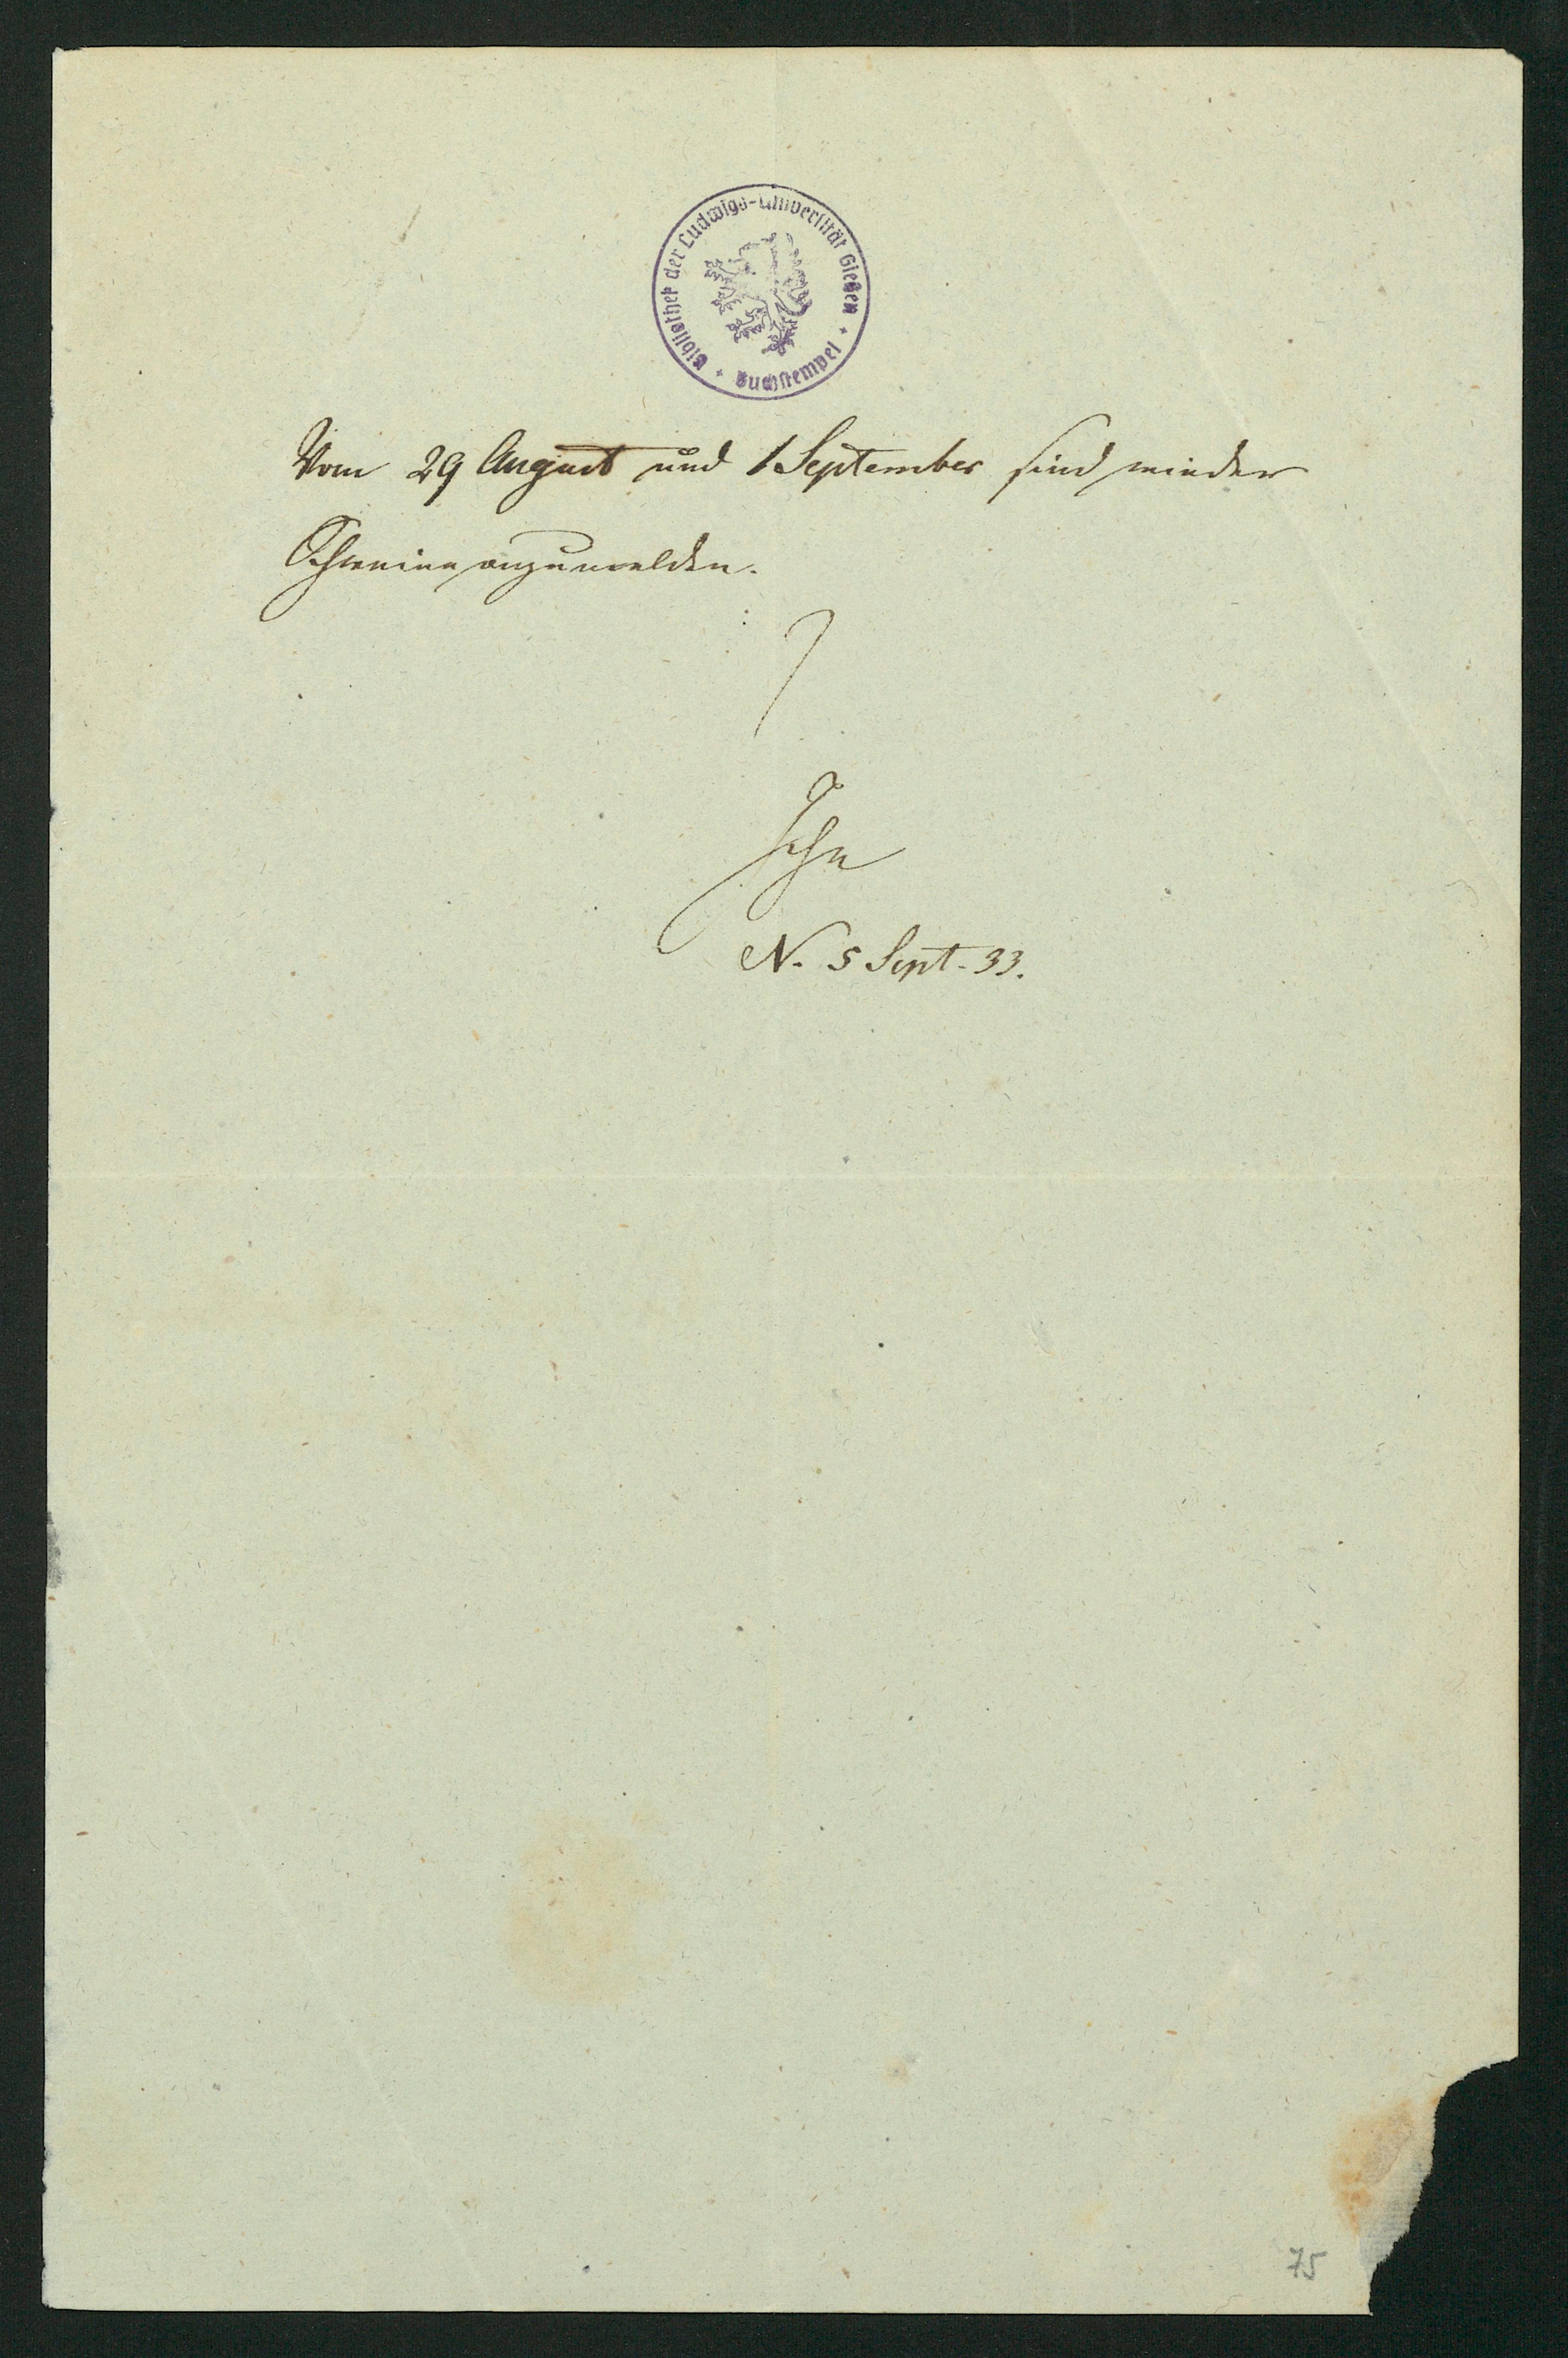 Bibliothek der Ludwigs-Universität Gießen
Buchstempel
Vom 29 August und 1 September sind wieder
Schweine anzumelden.
N. 5 Sept. 33.
75